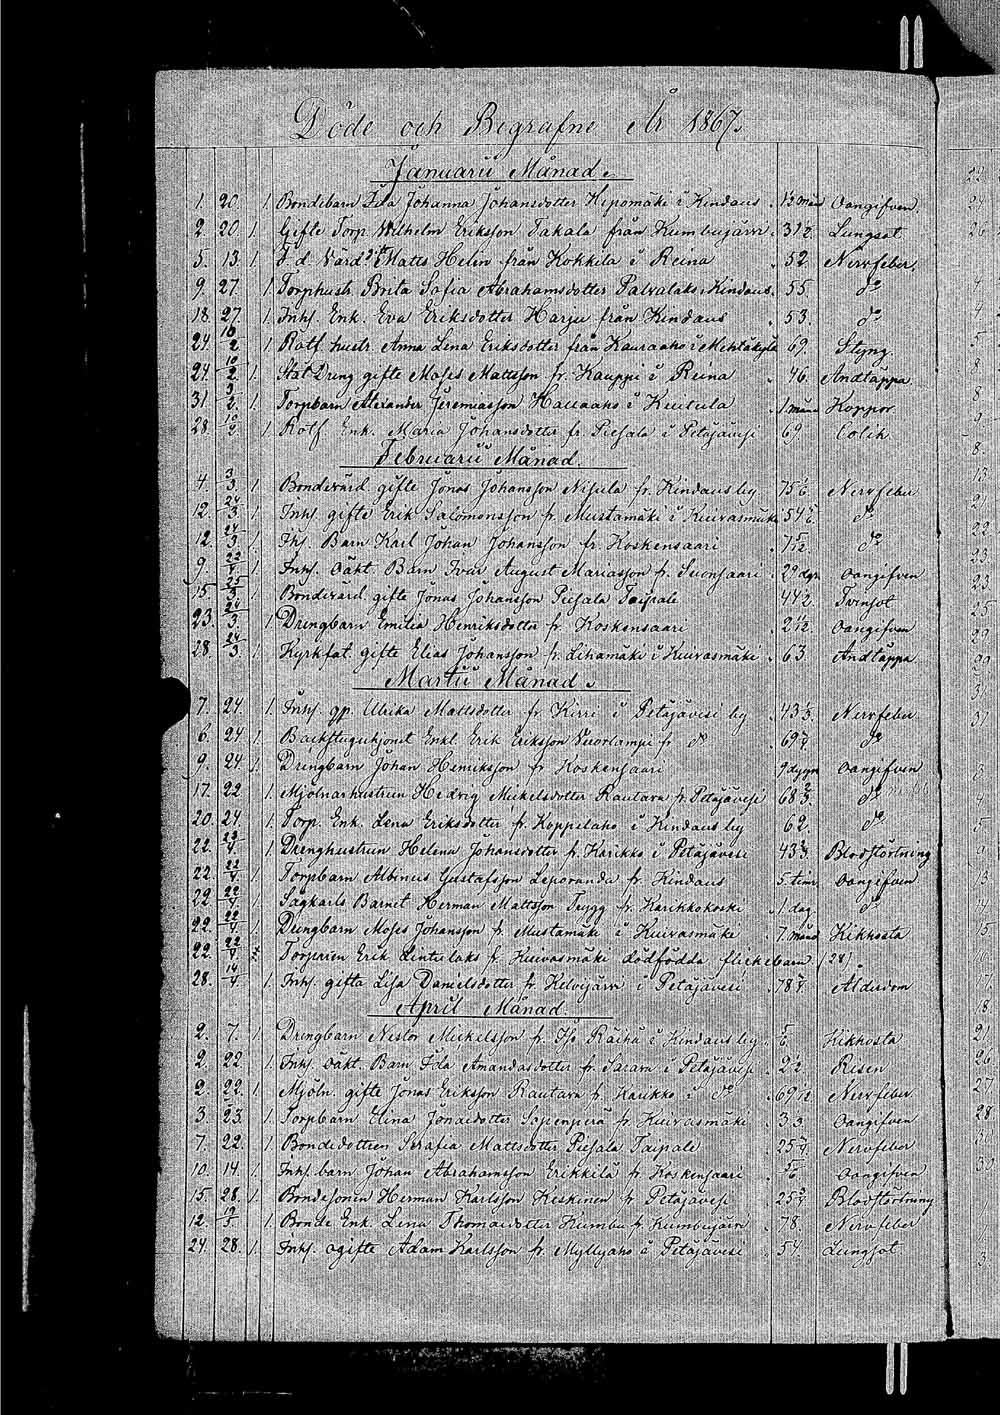 Döde och Begrafne År 1867.
Januarii Månad.
1. 20. 1. Bondebarn Ida Johanna Johansdotter Hepomäki i Kindaus 1½ mån Oangifven.
2. 20. 1. Gifte Torp. Wilhelm Eriksson Takala från Kumbujärvi 31 Lungsot
5. 13. 1. F.d. Matts Helin från Kokkila i Reina 52. Nervfeber.
9. 27. 1. Torphustr. Brita Sofia Abrahamsdotter Palvalaks i Kindaus. 55. do
18. 27. 1. Inhs. Enk. Eva Eriksdotter Harju från Kindaus 53. do
24 10/2 1. Rotf. hustr. Anna Lena Eriksdotter från Kauraaho i 69. Styng.
24. 10/2. 1. Stat Dreng gifte Moses Mattsson fr. Kauppi i Reina 46. Andtäppa.
31 3/2. 1. Torpbarn Alexander Jeremiasson i Kuitula 1 mån Koppor
28. 10/2. 1. Rotf. Enk. Maria Johansdotter fr. Piesala i Petäjävesi 69 Colik
Februarii Månad.
4. 3/3. 1. Bondevärd. gifte Jonas Johansson Nisula fr. Kindaus by 75 Nervfeber
12. 24/3 1. Inhs. gifte Erik Salomonsson fr. Mustamäki i Kuivasmäki 54 do
12. 24/3 1. Ihs. Barn Karl Johan Johansson fr. Koskensaari do
9. 22/4 1. Inhs. Oäkt Barn Ivar August Mariasson fr. Suonsaari 29 dgr Oangifven
15 25/3 1. Bondevärd. gifte Jonas Johansson Piesala Taipale 44 Tvinsot
23. 24/3. 1. Drengbarn Emilia Henriksdotter fr. Koskensaari 2 Oangifven
28. 24/3. 1. Kyrkfat. gifte Elias Johansson fr. Lihamäki i Kuivasmäki 63 Andtäppa
Martii Månad.
7. 24. 1. Inhs. gp. Ulrika Mattsdotter fr. Kirri i Petäjävesi by 43 Nervfeber
6. 24. 1. Enkl. Erik Eriksson Vuorlampi fr do 69 do
9. 24 1. Drengbarn Johan Henriksson fr Koskensaari 9 dygn Oangifven
17. 22. 1. Mjölnarhustrun Hedvig Mickelsdotter Rautara fr. Petäjävesi 68 do
20. 24 1. Torp. Enk. Lena Eriksdotter fr. Koppelaho i Kindaus by 62. do
22. 1. Drenghustrun Helena Johansdotter fr. Karikko i Petäjävesi 43 Blodstörtning
22. 22/4 1. Torpbarn Albinus Gustafsson Leporanda fr. Kindaus 5. tim Oangifven
22 22/4. 1. Sågkarls Barnet Herman Mattsson Trygg fr. Karikkokoski 1 dag do
22. 22/4. 1. Drengbarn Moses Johansson fr. Mustamäki i Kuivasmäki 7. månd Kikhosta
22. 22/4 Erik Lintulaks fr. Kuivasmäki dödfödda flickebarn (28)
28. 14/4. 1. Inhs. gifta Lisa Danielsdotter fr Kelvijärvi i Petäjävesi 78 Ålderdom
April Månad.
2. 7. 1. Drengbarn Nestor Mickelsson fr. Räihä i Kindaus by Kikhosta
2. 22. 1. Inhs. oäkt. Barn Ida Amandasdotter fr. Sarara i Petäjävesi 2½ Risen
2. 22. 1. Mjöln. gifte Jonas Eriksson Rautara fr. Karikko i do 69 Nervfeber
3. 23. 1. Torpbarn Elina Jonasdotter Sopenperä fr Kuivasmäki 3 Oangifven
7. 22. 1. Bondedottren Serafia Mattsdotter Piesala Taipale 25 Nervfeber
10. 14. 1. Inhs. barn Johan Abrahamsson Erikkilä fr Koskensaari Oangifven
15. 28. 1. Bondesonen Herman Karlsson Keskinen fr Petäjävesi 25 Blodstörtning
12. 1. Bonde Enk. Lena Thomasdotter Kumbu fr Kumbujärvi 78. Nervfeber
24. 28. 1. Inhs. ogifte Adam Karlsson fr. Myllyaho i Petäjävesi 54. Lungsot